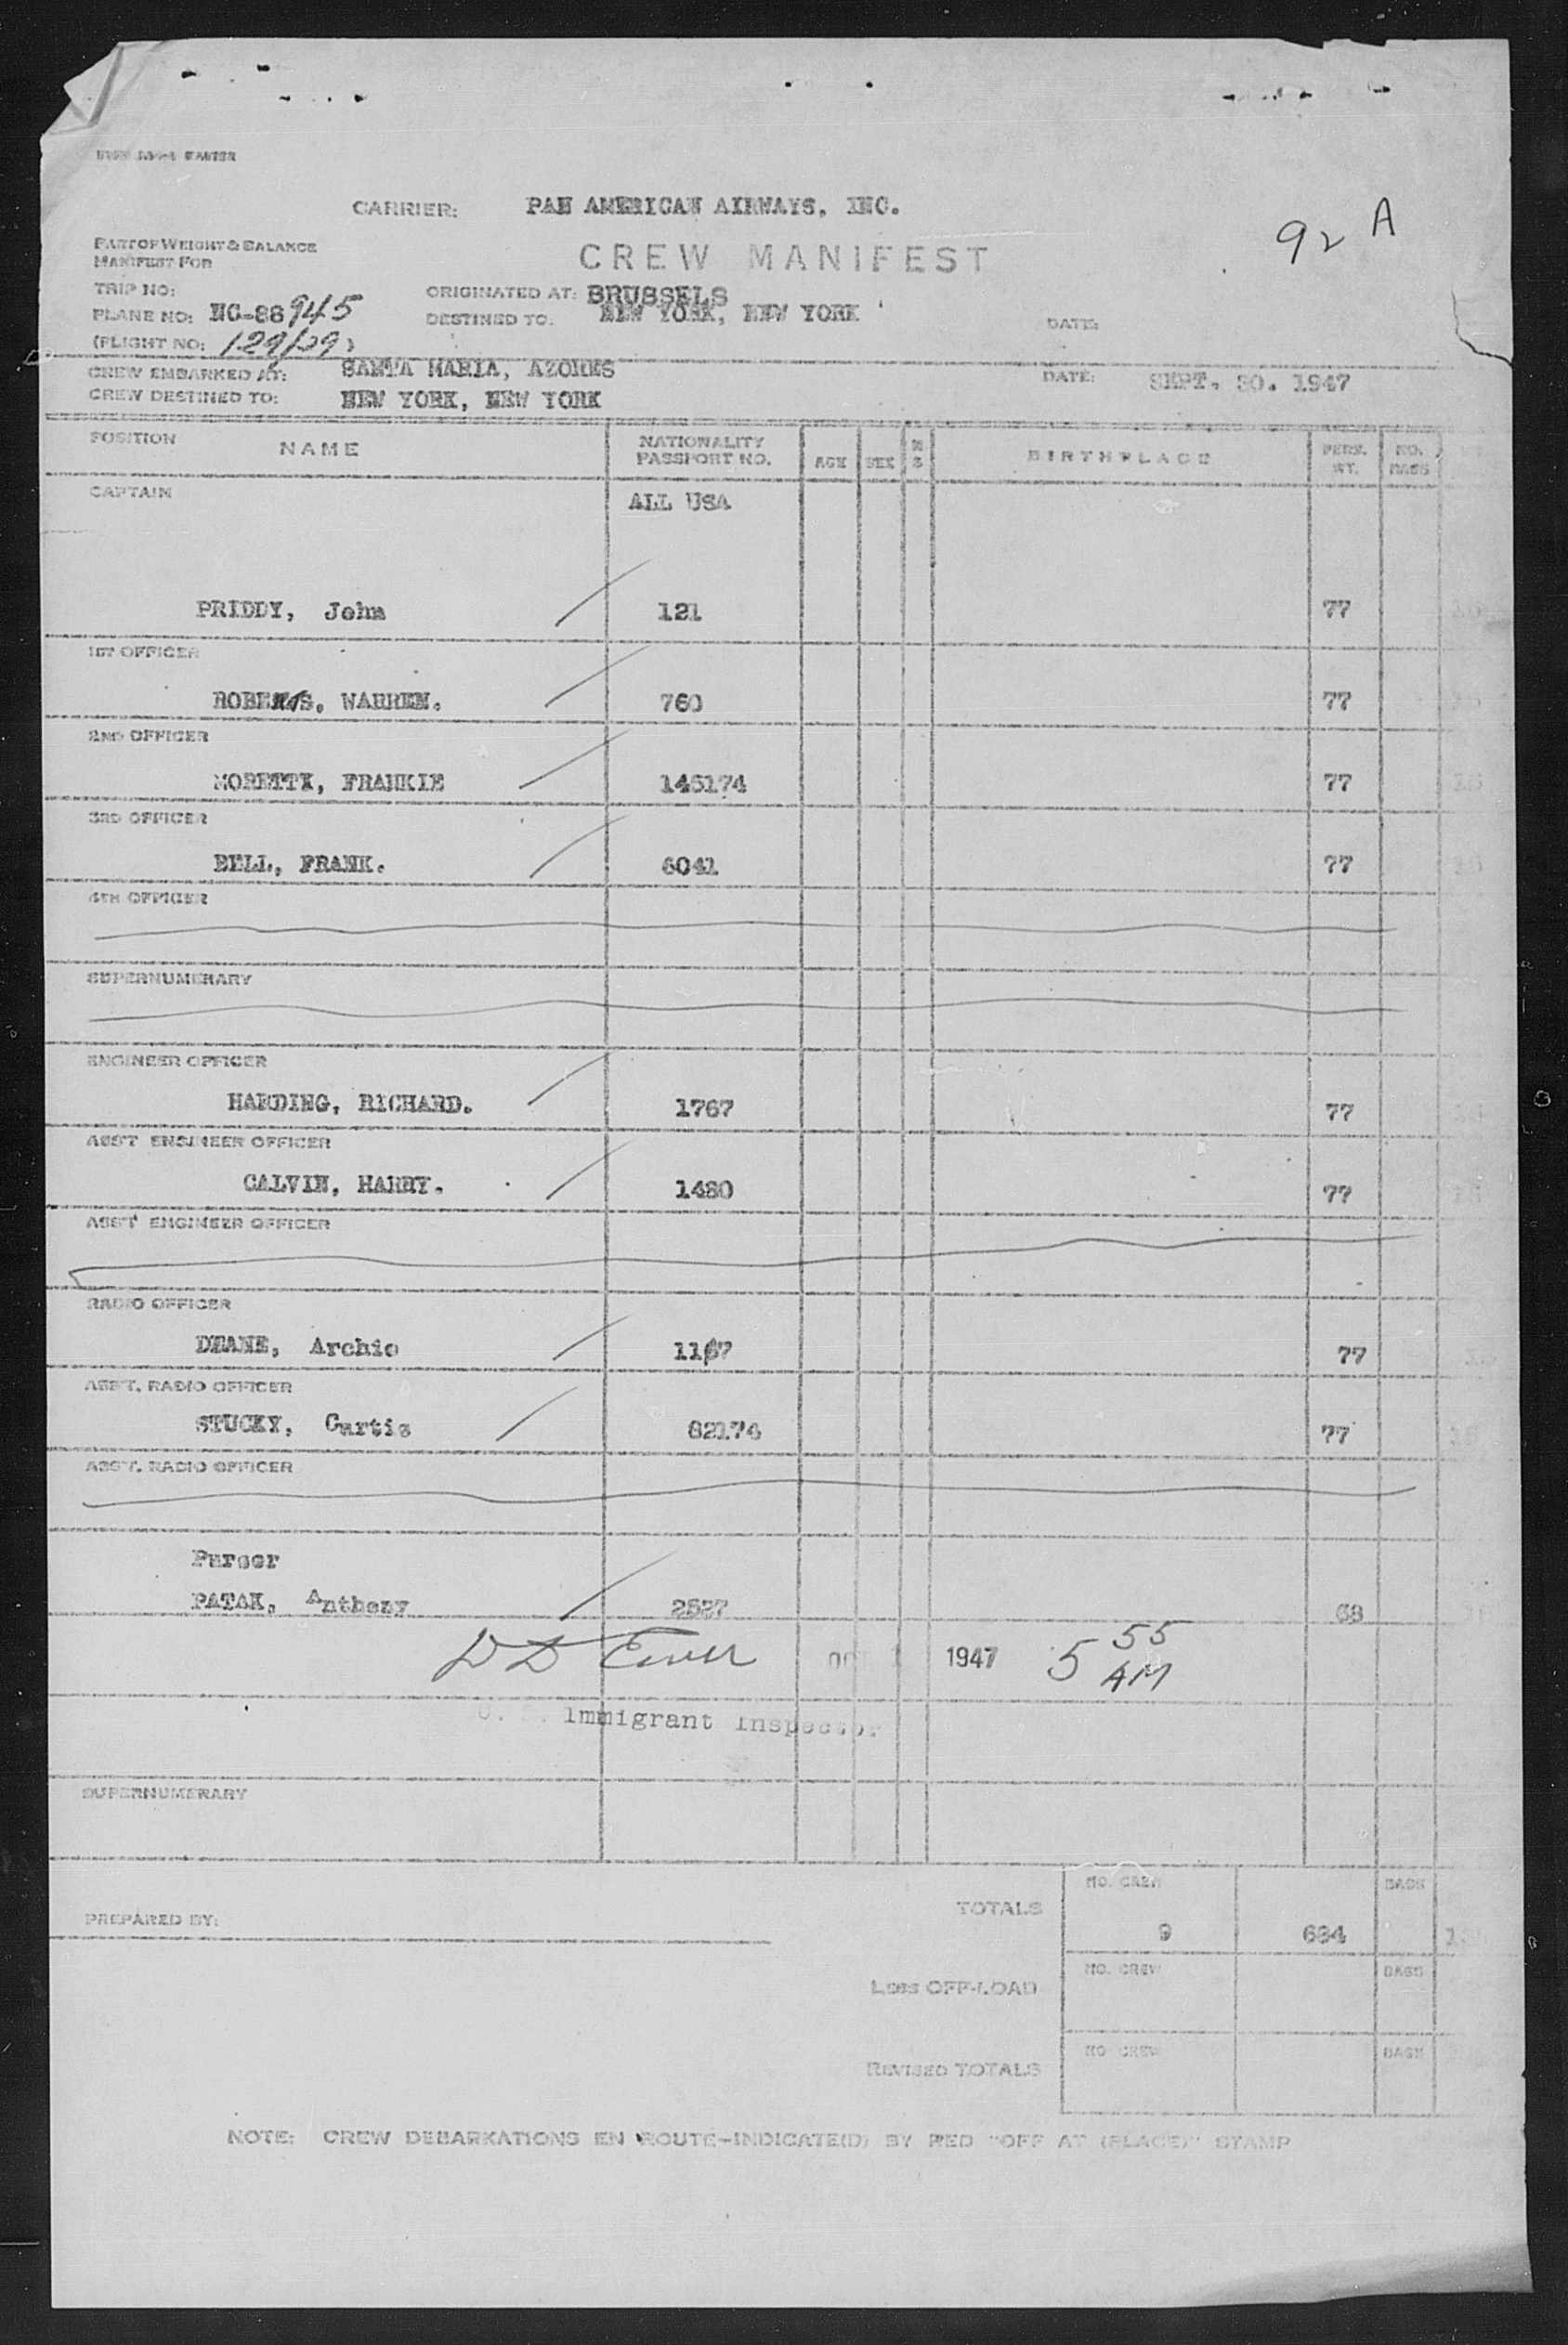 CARRIER: PAN AMERICAN AIRWAYS, INC.
92 A
PART OF WEIGHT & BALANCE
MANIFEST FOR
CREW MANIFEST
TRIP NO:
ORIGINATED AT: BRUSSELS
PLANE NO: NC-88945
DESTINED TO. NEW YORK, NEW YORK
DATE:
(FLIGHT NO: 129/29)
CREW EMBARKED AT: SANTA MARIA, AZORES
DATE: SEPT. 30. 1947
CREW DESTINED TO: NEW YORK, NEW YORK
POSITION NAME NATIONALITY PASSPORT NO. AGE SEX M S BIRTHPLACE PERS. WT. NO. BAGS
CAPTAIN ALL USA
PRIDDY, John 121 77
1ST OFFICER
ROBERTS, WARREN. 760 77
2ND OFFICER
MORETTI, FRANKIE 145174 77
3RD OFFICER
BELL, FRANK. 6041 77
4TH OFFICER
SUPERNUMERARY
ENGINEER OFFICER
HARDING, RICHARD. 1767 77
ASS'T ENGINEER OFFICER
CALVIN, HARRY. 1480 77
ASS'T ENGINEER OFFICER
RADIO OFFICER
DEANE, Archie 1167 77
ASS'T. RADIO OFFICER
STUCKY, Curtis 82174 77
ASS'T. RADIO OFFICER
Purser
PATAK, Anthony 2527 68
D D 1947 5 55 AM
Immigrant Inspector
SUPERNUMERARY
NO. CREW BAGS
PREPARED BY: TOTALS 9 684
NO. CREW BAGS
LESS OFF-LOAD
NO CREW BAGS
REVISED TOTALS
NOTE: CREW DEBARKATIONS EN ROUTE-INDICATE(D) BY RED "OFF AT (PLACE)" STAMP